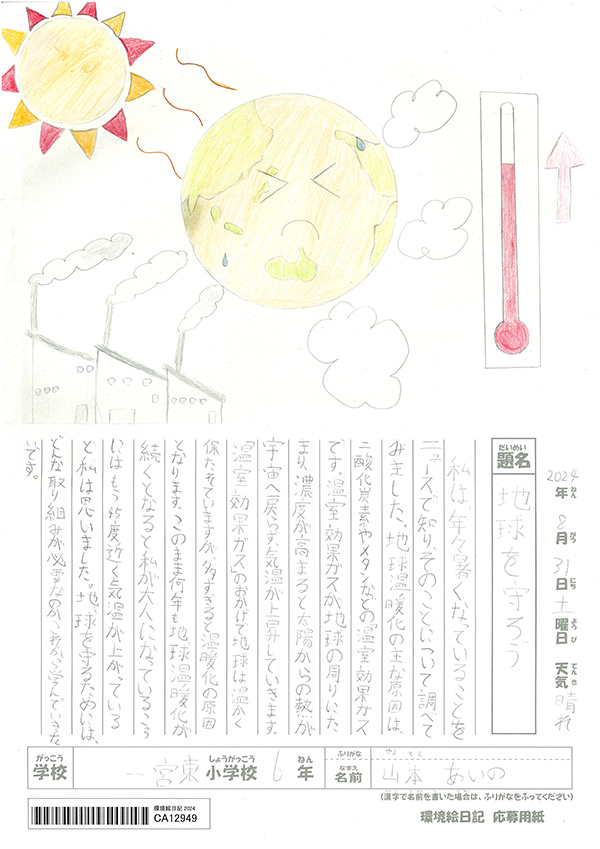 2024年 8月 31日 土曜日 天気 晴れ
ねん がつ にち ようび てんき
だいめい
題名
地球を守ろう
私は、年々暑くなっていることを
ニュースで知り、そのことについて調べて
みました。地球温暖化の主な原因は、
二酸化炭素やメタンなどの温室効果ガス
です。温室効果ガスが地球の周りにた
まり、濃度が高まると太陽からの熱が
宇宙へ戻らず、気温が上昇していきます。
「温室効果ガス」のおかげで地球は温かく
保たれていますが、多すぎると温暖化の原因
となります。このまま何年も地球温暖化が
続くとなると私が大人になっているころ
にはもう45度近く気温が上がっている
と私は思いました。地球を守るためには、
どんな取り組みが必要なのか、これから学んでいきた
いです。
がっこう しょうがっこう ねん
学校 一宮東 小学校 6 年
ふりがな やまもと
なまえ
名前 山本 あいの
(漢字で名前を書いた場合は、ふりがなをふってください)
環境絵日記 2024
CA12949
環境絵日記 応募用紙